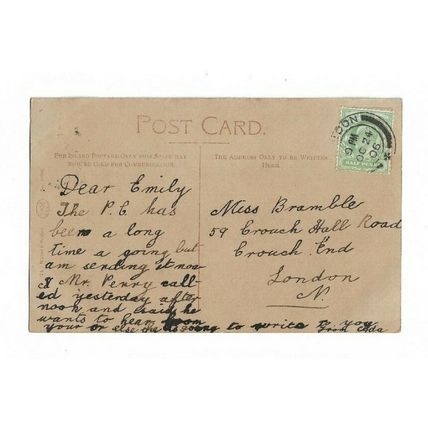 POST CARD.
FOR INLAND POSTAGE ONLY THIS SPACE MAY
NOW BE USED FOR COMMUNICATION.
THE ADDRESS ONLY TO BE WRITTEN
HERE.
Dear Emily
The P.C has
been a long
time a going but
am sending it now
& Mr. Penny call-
ed yesterday after
noon and said he
wants to hear from
your or else is going to write to you
from Ada
Miss Bramble
59 Crouch Hall Road
Crouch End
London
N.
OC 24
06
HALF PENNY